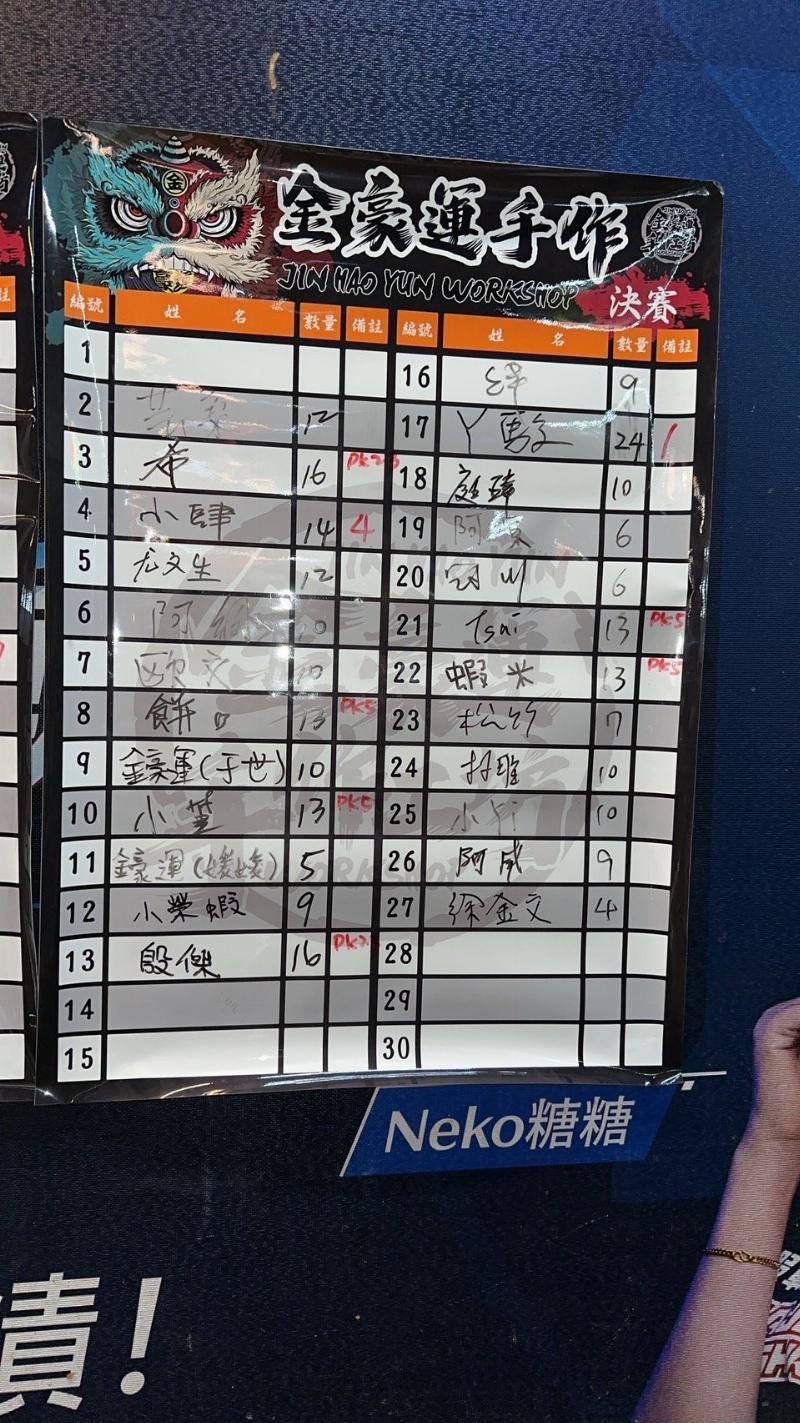 金豪運手作
JIN HAO YUN WORKSHOP
決賽
編號 姓名 數量 備註 編號 姓名 數量 備註
1
2 12
3 希 16
4 小肆 14 4
5 尤文生 12
6 阿 10
7 歐文 10
8 餅 13 PK5
9 金豪運(于世) 10
10 小 13 PK5
11 金豪運 5
12 小榮蝦 9
13 殷傑 16 PK2
14
15
16 9
17 丫 24 1
18 庭 10
19 阿 6
20 冠州 6
21 Tsai 13 PK5
22 蝦米 13 PK5
23 松竹 7
24 10
25 小 10
26 阿威 9
27 徐金文 4
28
29
30
Neko糖糖
責!